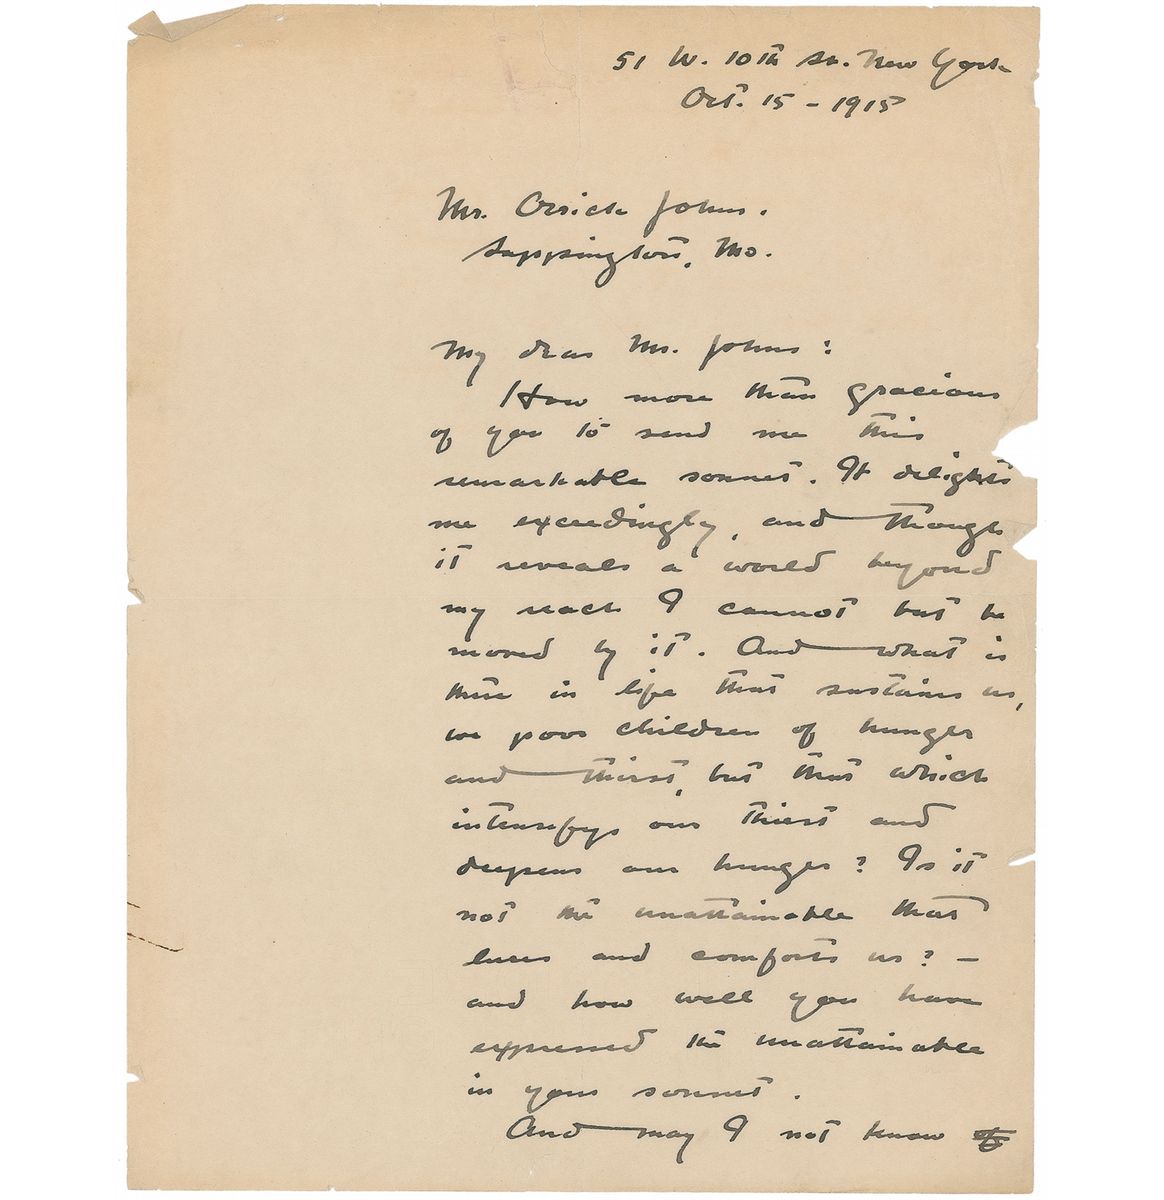 51 W. 10th St. New York
Oct. 15 - 1915
Mr. Orrick Johns.
Sappington, Mo.
My dear Mr. Johns:
How more than gracious
of you to send me this
remarkable sonnet. It delights
me exceedingly, and though
it reveals a world beyond
my reach I cannot but be
moved by it. And what is
there in life that sustains us,
we poor children of hunger
and thirst, but that which
intensifys our thirst and
deepens our hunger? Is it
not the unattainable that
lures and comforts us? –
and how well you have
expressed the unattainable
in your sonnet.
And may I not know